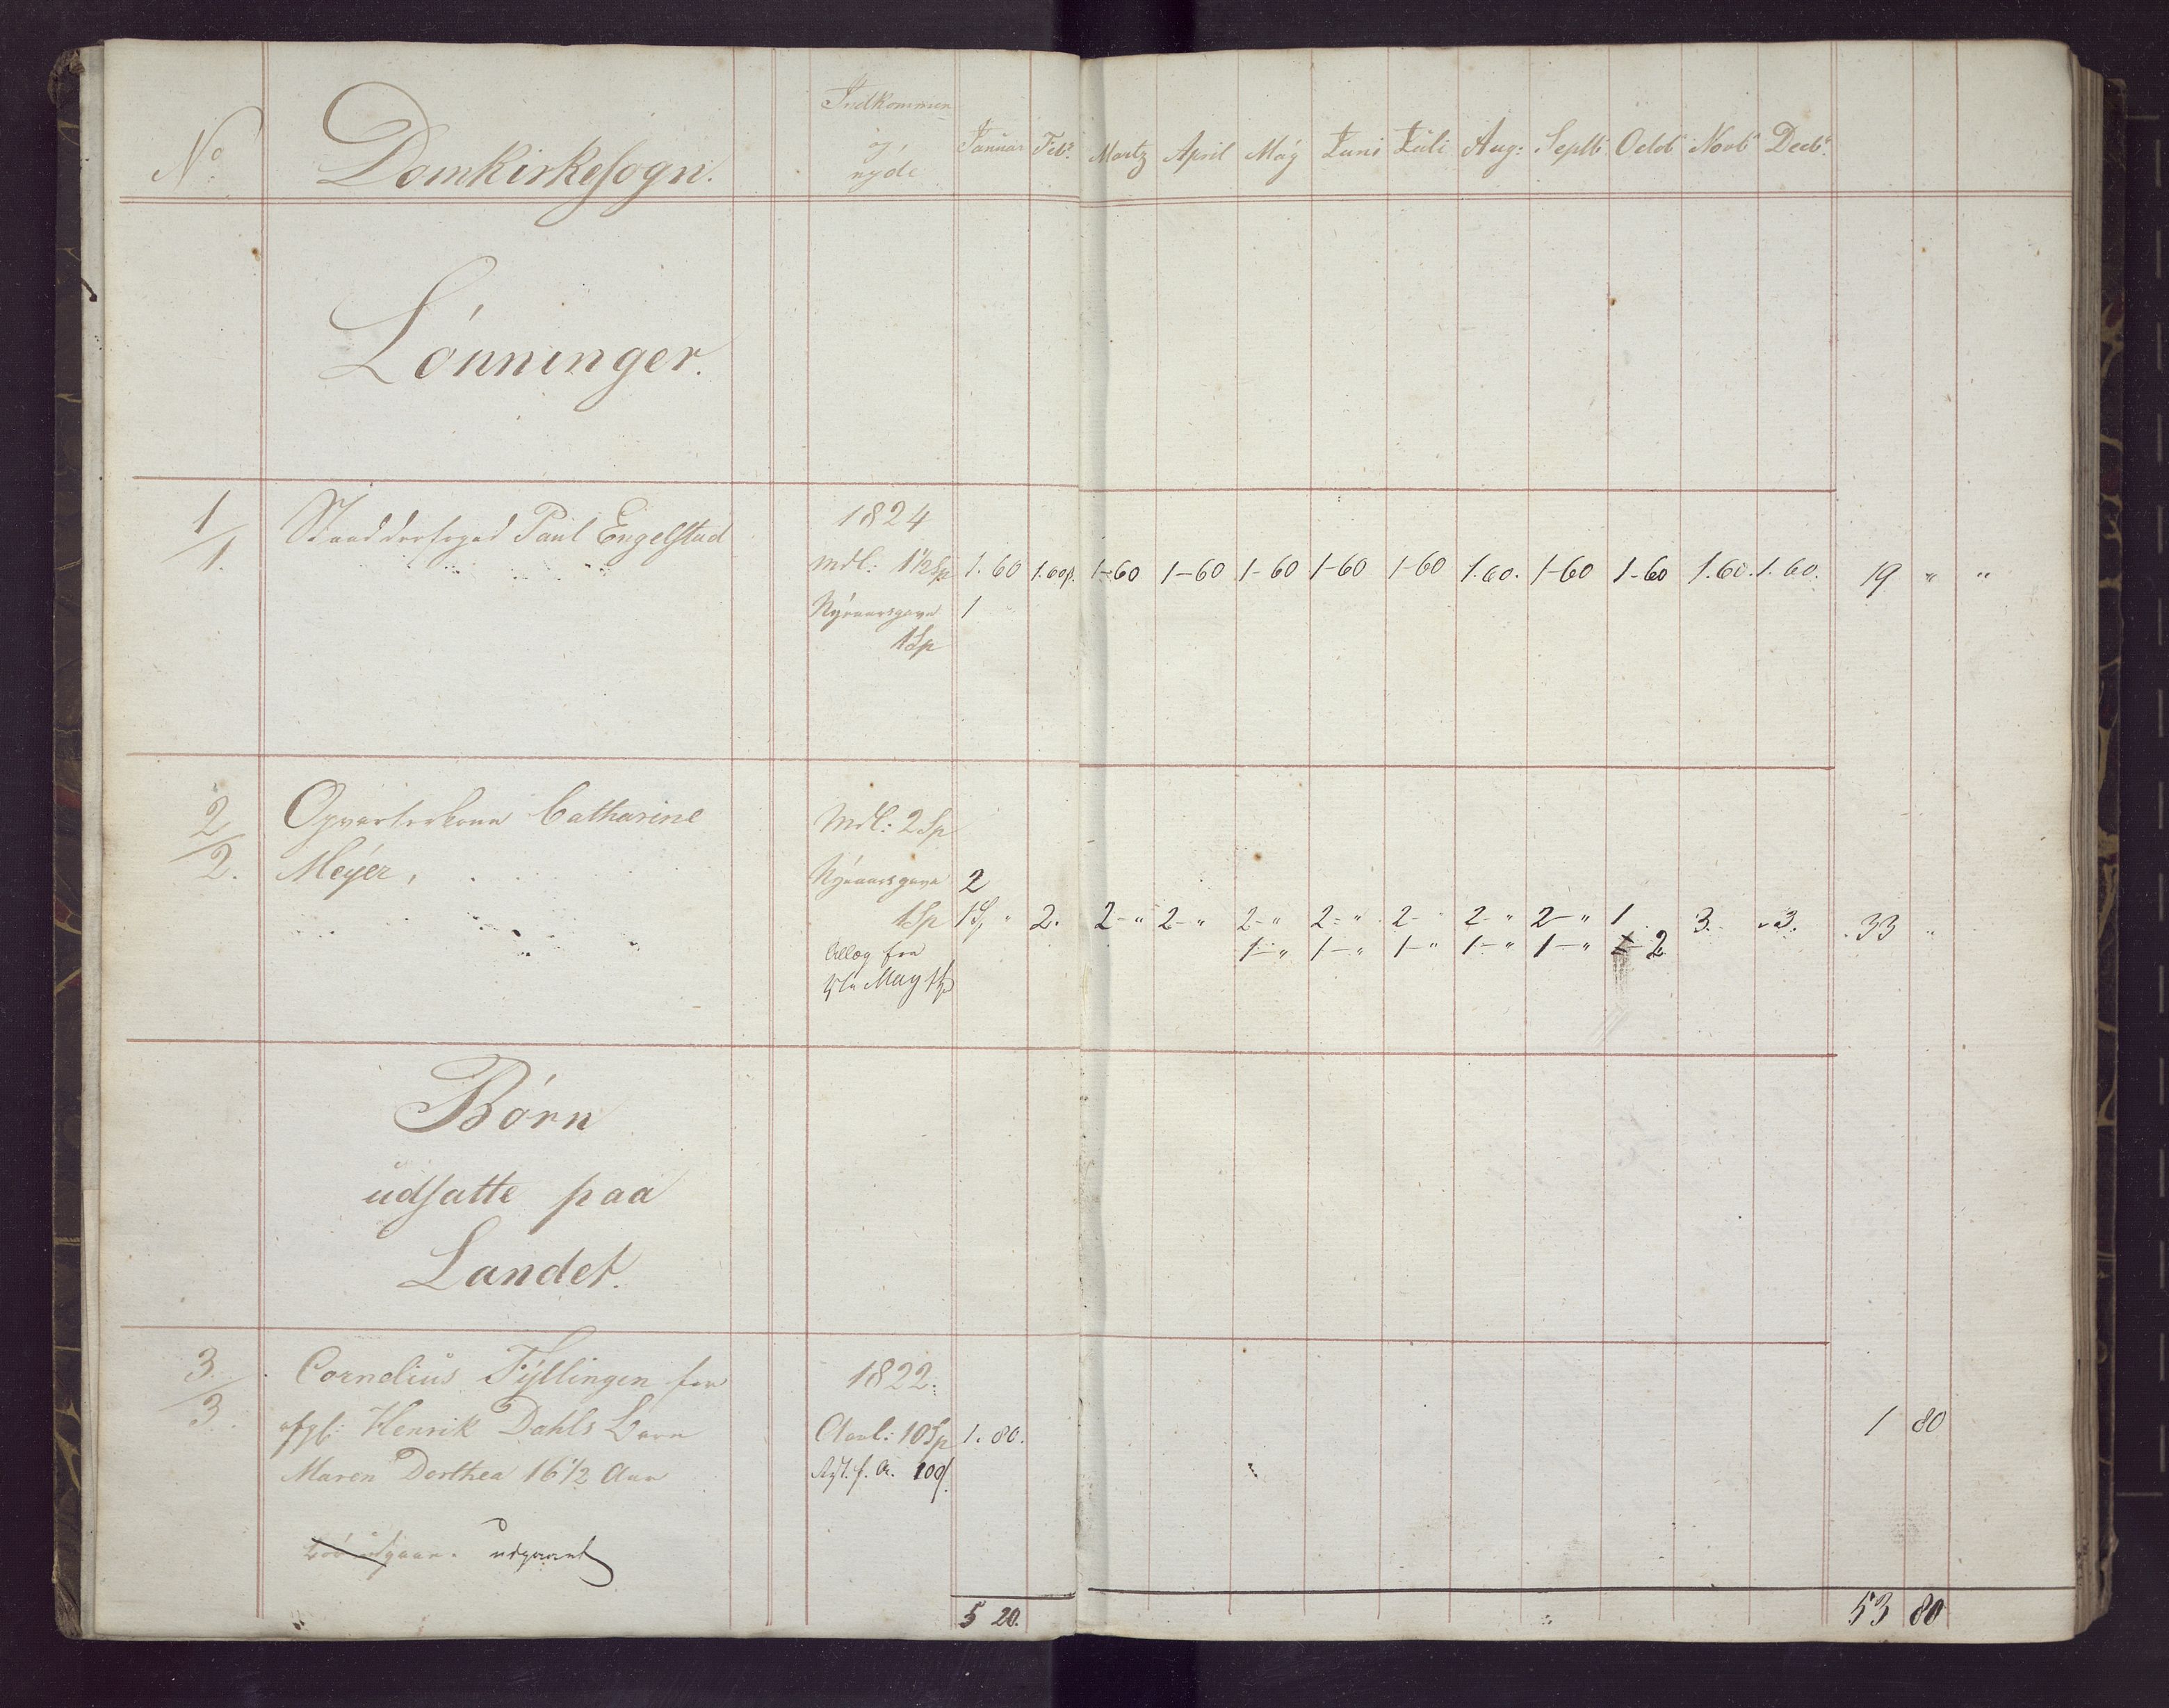 No. Domkirkesogn. Indkommen og nyde Januar Febr. Martz April May Juni Juli Aug: Septb: Octob: Novb: Decb:
Lønninger.
1/1. Paul Engelstad 1824
Mdl: 1½ Sp 1.60 1.60 1-60 1-60 1-60 1-60 1-60 1.60. 1-60 1-60 1.60. 1.60. 19 " "
Nyaarsgave 1
1 Sp
2/2. Opvarterkone Catharine Mdl: 2 Sp
Meyer, Nyaarsgave 2
1 Sp 1 Sp " 2. 2-" 2-" 2-" 2-" 2- 2-" 2-" 1 3. " 3. 33 "
fra 1-" 1-" 1-" 1-" 1-" 2
May
Børn
udsatte paa
Landet.
3/3. Cornelius Tyllingen for 1822.
afgl: Henrik Dahls Barn Aarl: 10 Sp 1.80. 1 80
Maren Dorthea 16½ Aar
udgaaet
5 20. 53 80